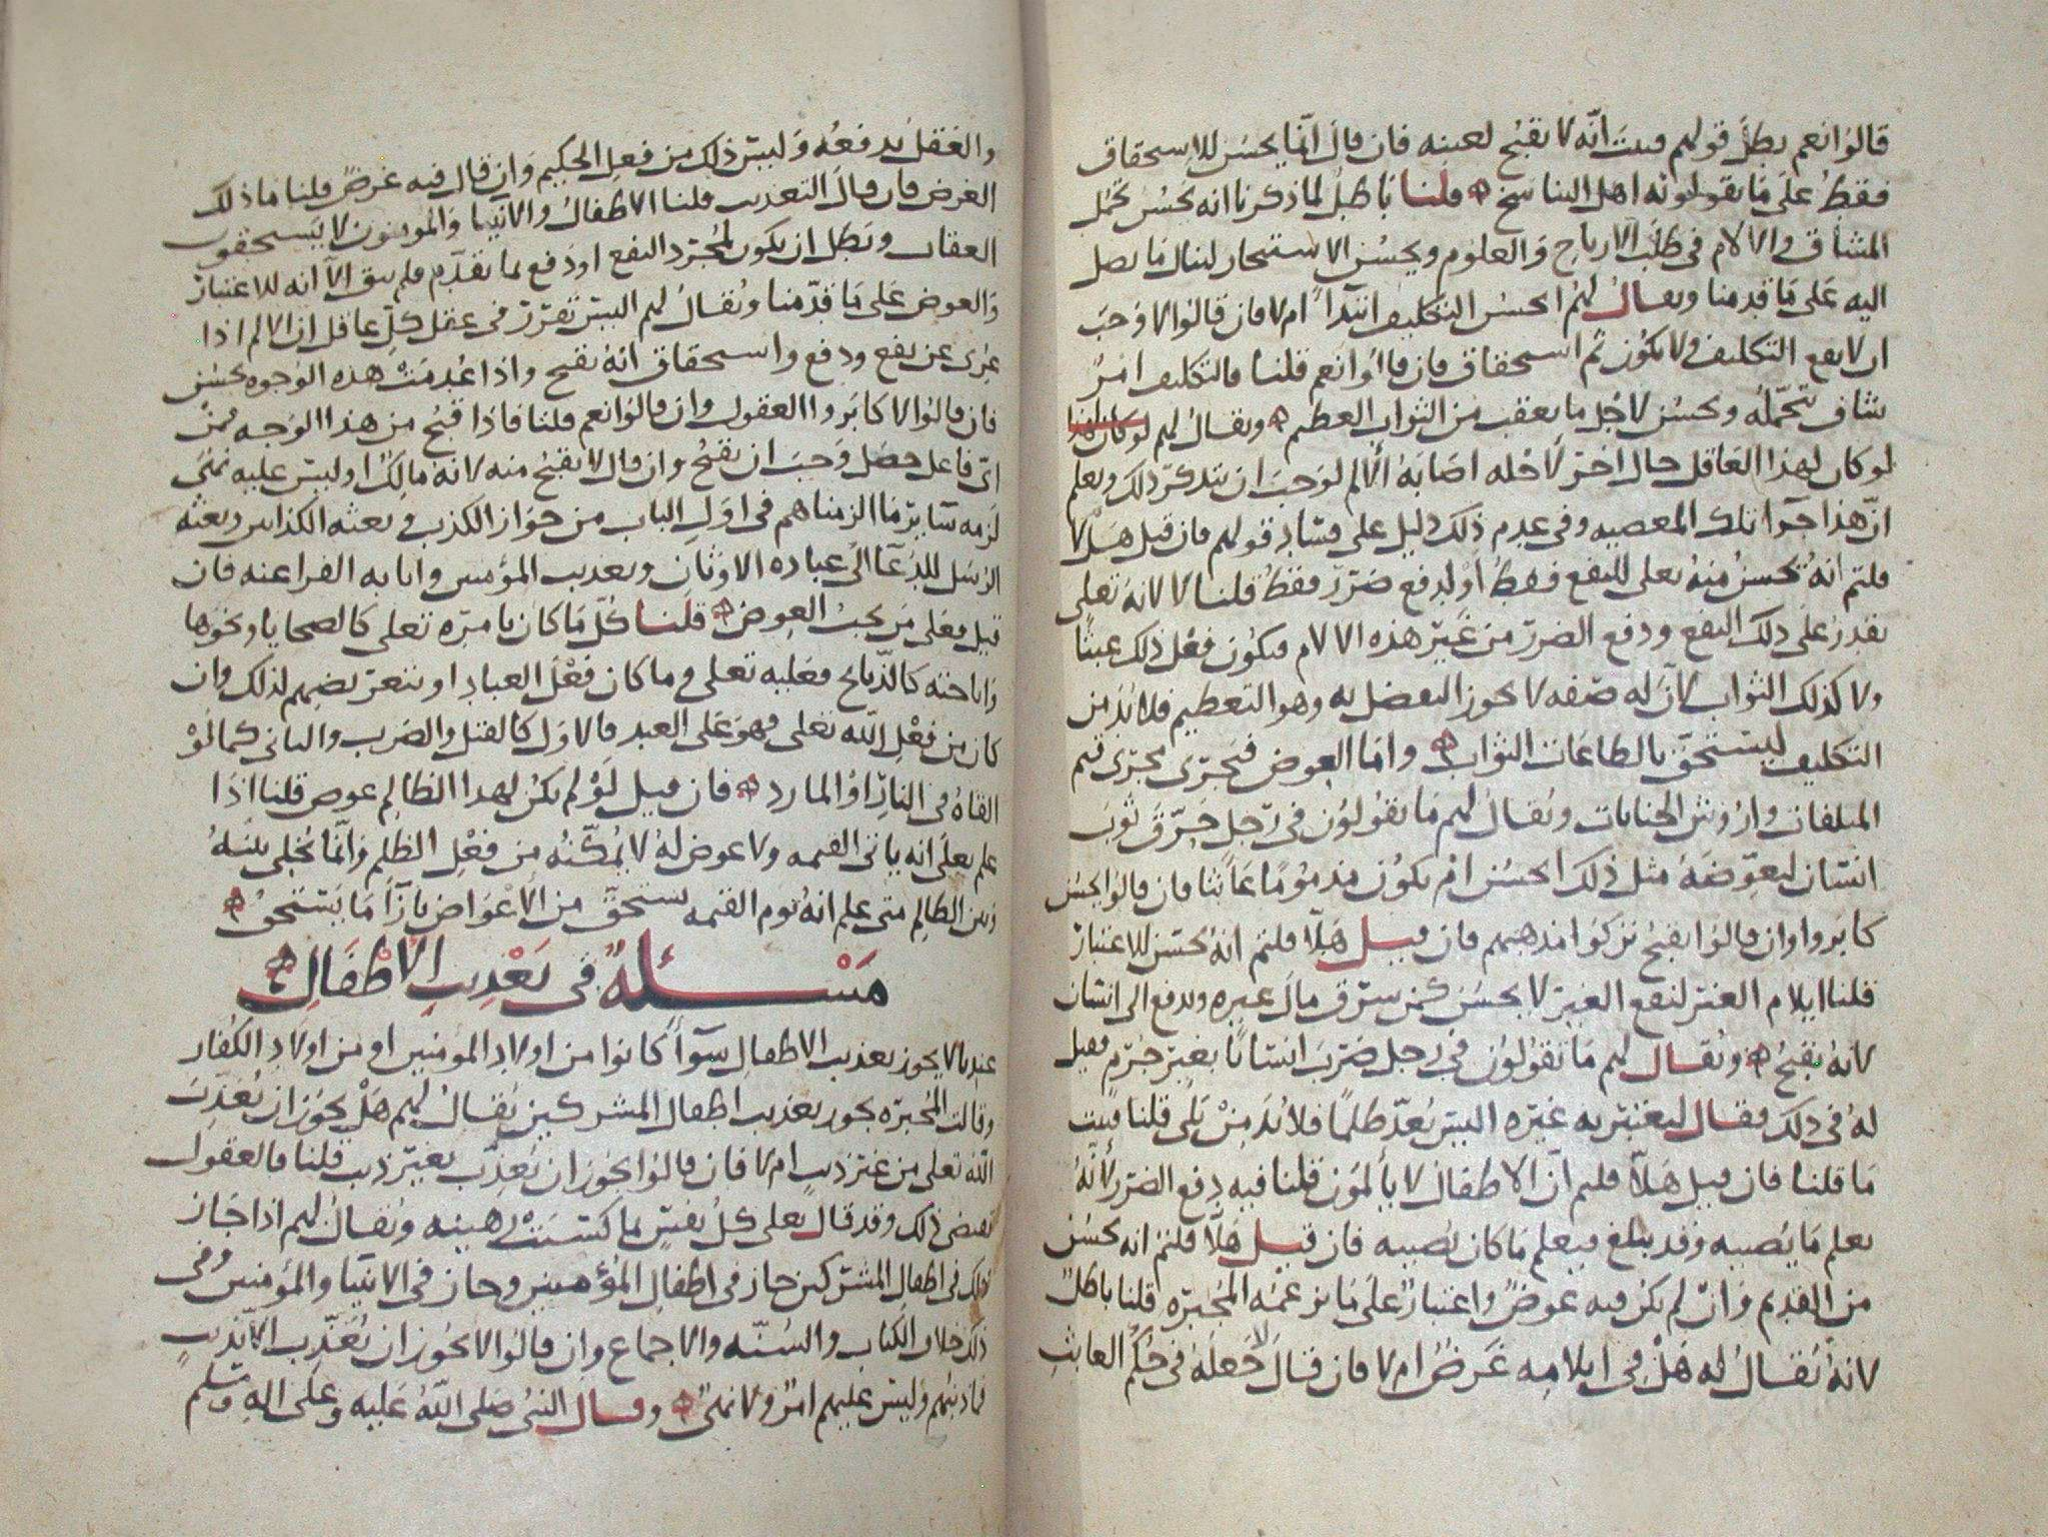 قالوا نعم بطل قولهم فيبت انه لا يقبح لعينه فان قال انما يحسن للاستحقاق
فقط على ما يقولونه اهل التناسخ قلنا باطل لما ذكرنا انه يحسن تحمل
المشاق والالام في طلب الارباح والعلوم ويحسن الاستجار لينال ما يصل
اليه على ما قدمنا ويقال لهم ايحسن التكليف ابتدآ ام لا فان قالوا لا وجب
ان لا يقع التكليف ولا يكون ثم استحقاق فان قالوا نعم قلنا فالتكليف امر
شاق تحمله وحسن لاجل ما يعقب من الثواب العظيم ويقال لهم
لو كان لهذا العاقل حال اخر لاجله اصابه الالم لوجب ان يتذكر ذلك ويعلم
ان هذا جزآ تلك المعصيه وفي عدم ذلك دليل على فساد قولهم فان قيل هلا
قلتم انه يحسن منه تعلى للنفع فقط او لدفع ضرر فقط قلنا لا لانه تعلى
يقدر على ذلك النفع ودفع الضرر من غير هذه الالام فيكون فعل ذلك عبثا
ولا كذلك الثواب لان له صفه لا يجوز التفضل به وهو التعظيم فلا بد من
التكليف ليستحق بالطاعات الثواب واما العوض فيجرى مجرى قيم
المتلفات واروش الجنايات ويقال لهم ما تقولون في رجل حرق ثوب
انسان ليعوضه مثل ذلك ايحسن ام يكون مذموما عابثا فان قالوا يحسن
كابروا وان قالوا يقبح تركوا مذهبهم فان قيل هلا قلتم انه يحسن للاعتبار
قلنا ايلام الغير لنفع الغير لا يحسن كمن سرق مال غيره ودفع الى انسان
لانه يقبح ويقال لهم ما تقولون في رجل ضرب انسانا بغير جرم فقيل
له في ذلك فقال ليعتبر به غيره اليس يعد ظلما فلا بد من بلى قلنا فيبت
ما قلنا فان قيل هلا قلتم ان الاطفال لا يألمون قلنا فيه دفع الضرر لانه
يعلم ما يصيبه وقد يبلغ فيعلم ما كان يصيبه فان قيل هلا قلتم انه يحسن
من القديم وان لم يكن فيه عوض واعتبار على ما تزعمه المجبره قلنا باطل
لانه يقال له هل في ايلامه غرض ام لا فان قال لا جعله في حكم العابث
والعقل يدفعه وليس ذلك من فعل الحكيم وان قال فيه غرض قلنا ما ذلك
الغرض فان قال التعذيب قلنا الاطفال والانبيا والمومنون لا يستحقون
العقاب وبطل ان يكون لمجرد النفع او دفع لما تقدم فلم يبق الا انه للاعتبار
والعوض على ما قدمنا ويقال لهم اليس تقرر في عقل كل عاقل ان الالم اذا
عرى عن نفع ودفع واستحقاق انه يقبح واذا عدمت هذه الوجوه يحسن
فان قالوا لا كابروا العقول وان قالوا نعم قلنا فاذا قبح من هذا الوجه فمن
اى فاعل حصل وجب ان يقبح وان قال لا يقبح منه لانه مالك او ليس عليه نهى
لزمه ساير ما الزمناهم في اول الباب من جواز الكذب وبعثه الكذابين وبعثه
الرسل للدعآ الى عباده الاوثان وتعذيب المؤمنين واثابه الفراعنه فان
قيل فعلى من يجب العوض قلنا كل ما كان بامره تعلى كالضحايا ونحوها
واباحته كالذبايح فعليه تعلى وما كان فعل العباد او بتعريضهم لذلك وان
كان من فعل الله تعلى فهو على العبد فالاول كالقتل والضرب والثاني كما لو
القاه في النار او المارد فان قيل لو لم يكن لهذا الظالم عوض قلنا اذا
علم تعلى انه ياتي القيمه ولا عوض له لا يمكنه من فعل الظلم وانما يخلى بينه
وبين الظالم متى علم انه يوم القيمه يستحق من الاعواض بازآ ما يستحق
مسئلة في تعذيب الاطفال
عندنا لا يجوز تعذيب الاطفال سوآ كانوا من اولاد المؤمنين او من اولاد الكفار
وقالت المجبره يجوز تعذيب اطفال المشركين يقال لهم هل يجوز ان يعذب
الله تعلى من غير ذنب ام لا فان قالوا يجوز ان يعذب بغير ذنب قلنا فالعقول
تقتضى ذلك وقد قال تعلى كل نفس بما كسبت رهينه ويقال لهم اذا جاز
ذلك في اطفال المشركين جاز في اطفال المؤمنين وجاز في الانبيا والمؤمنين وفى
ذلك خلاف الكتاب والسنه والاجماع وان قالوا لا يجوز ان يعذب الا بذنب
فما ذنبهم وليس عليهم امر ولا نهى وقال النبي صلى الله عليه وعلى اله وسلم